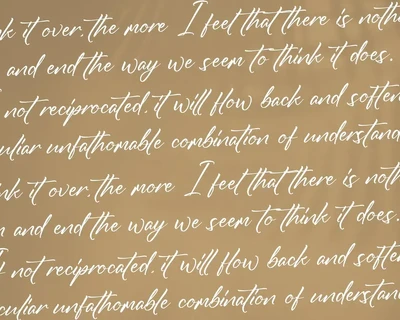 nk it over, the more I feel that there is noth
and end the way we seem to think it does.
not reciprocated, it will flow back and soften
culiar unfathomable combination of understand
nk it over, the more I feel that there is noth
n and end the way we seem to think it does.
not reciprocated, it will flow back and soften
culiar unfathomable combination of understand